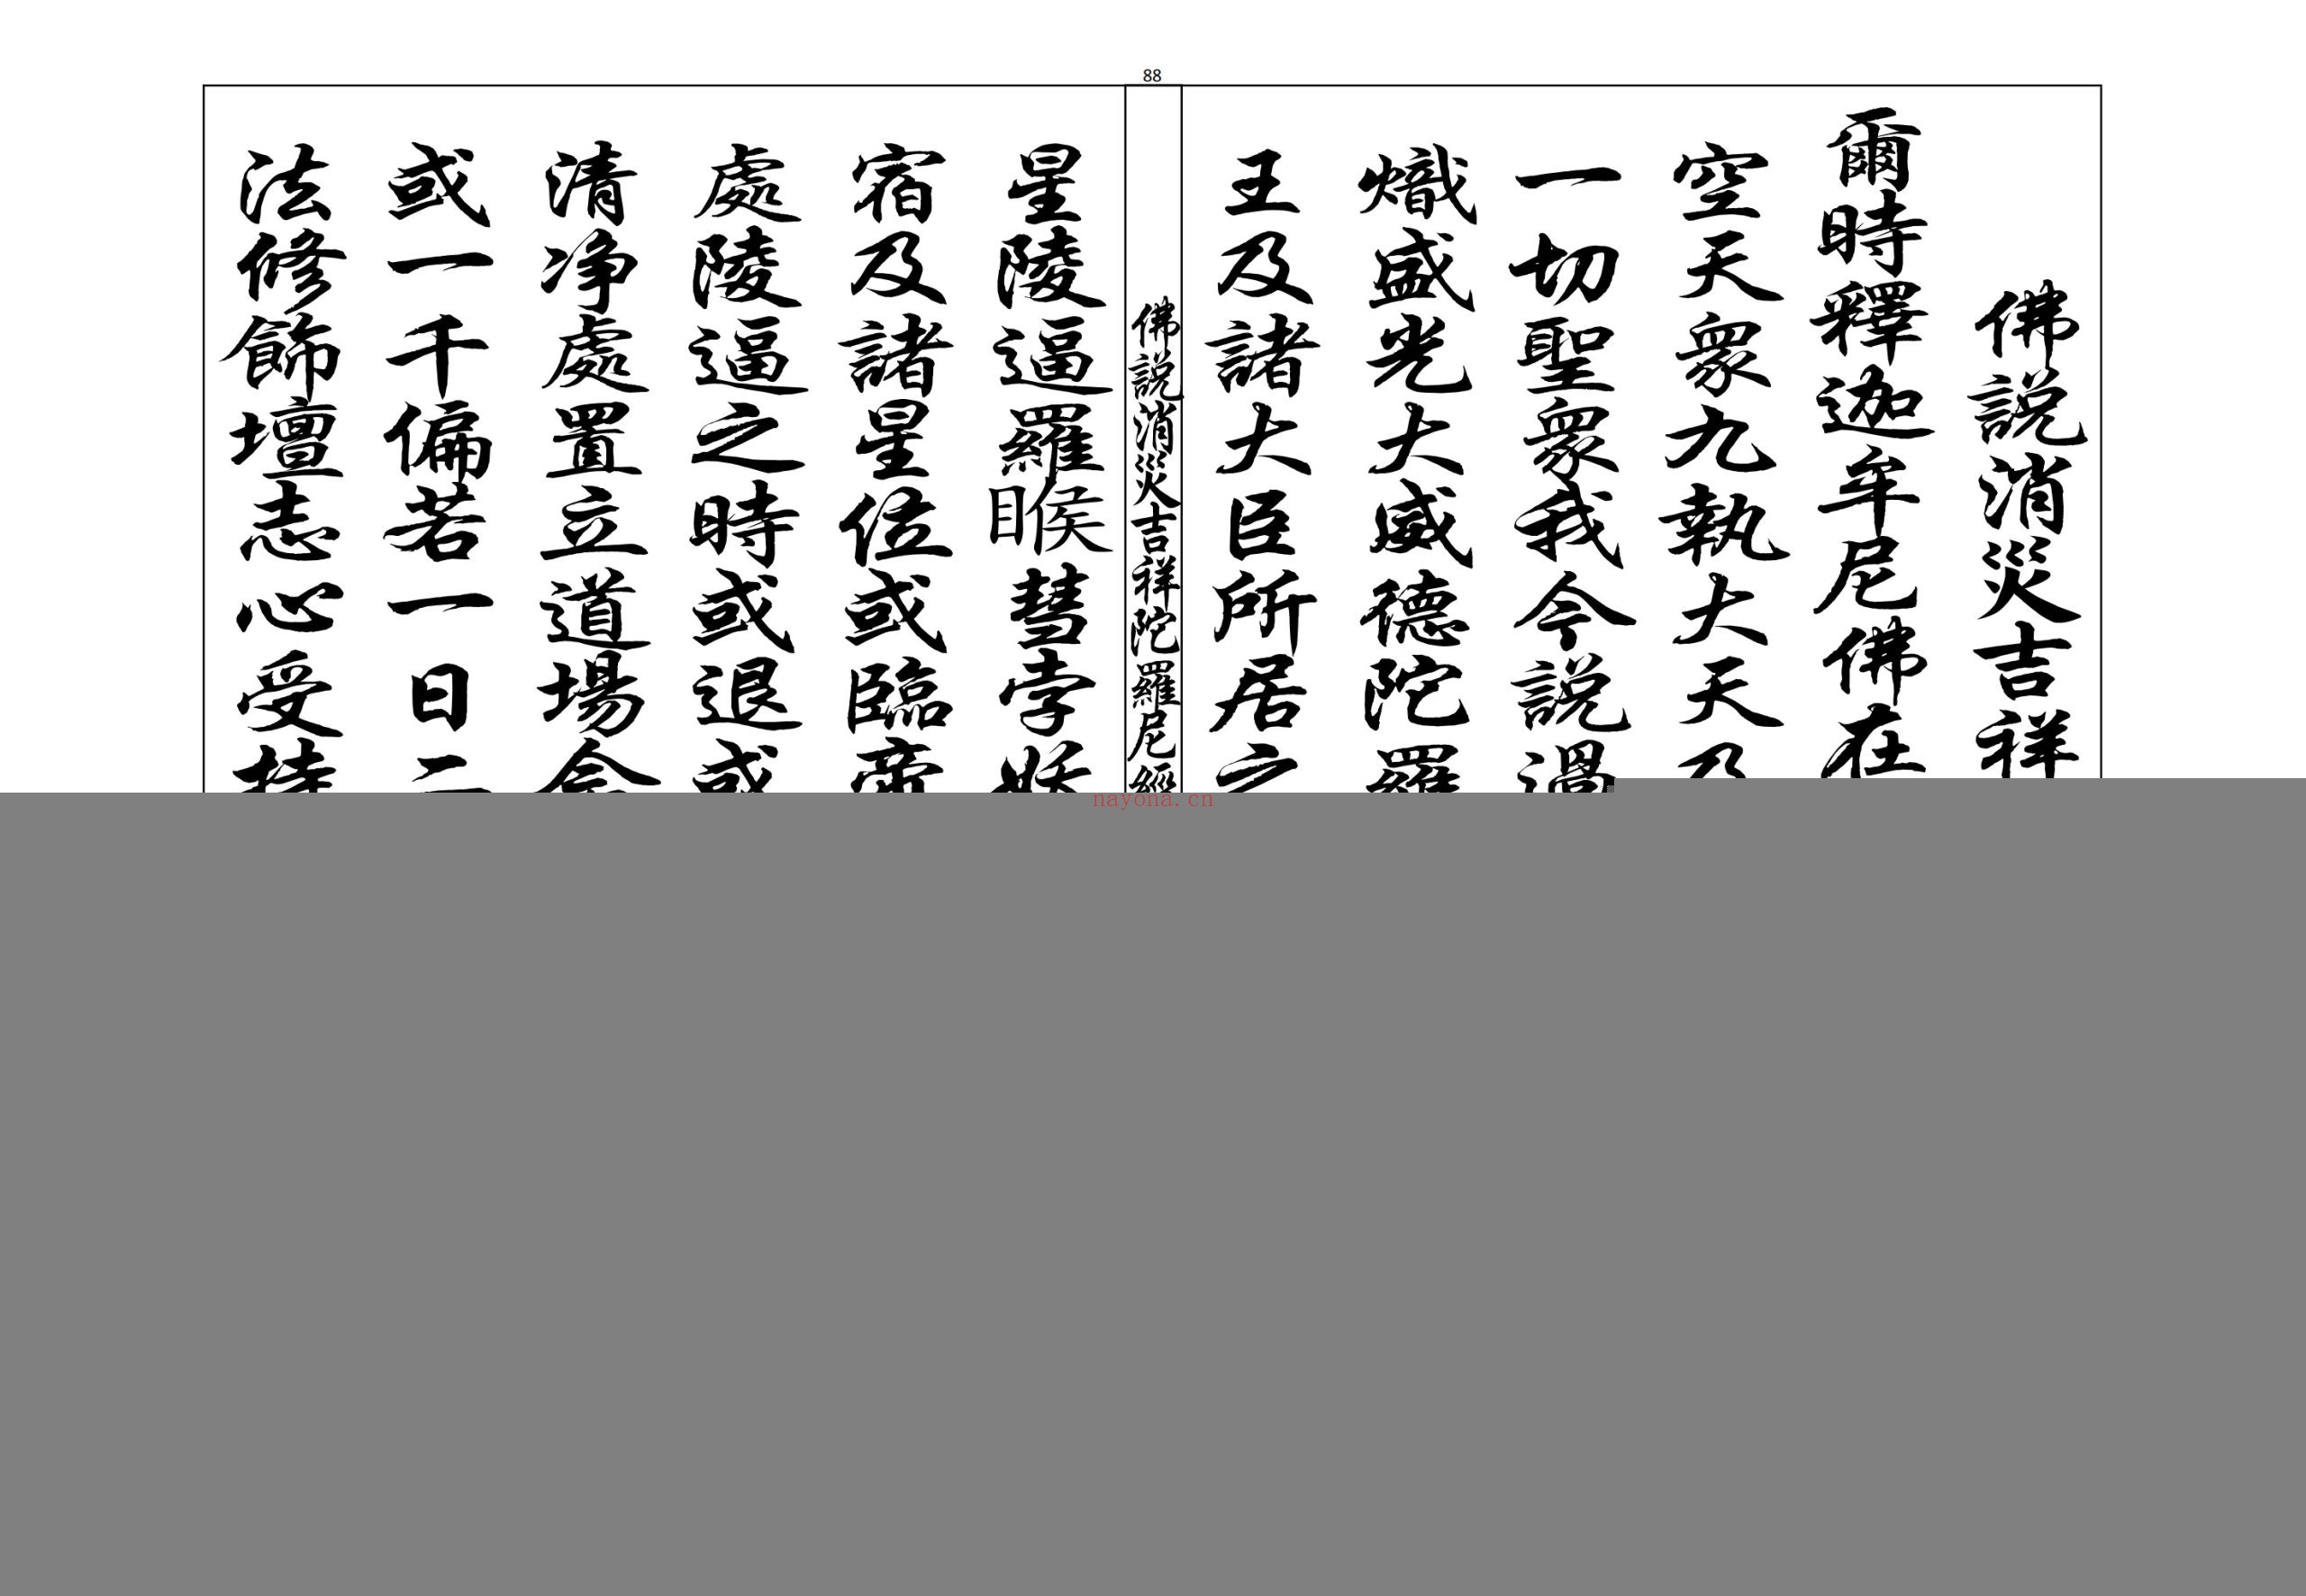 88
佛說消災吉祥
爾時釋迦牟尼佛住
空天眾九執大天及
一切聖眾我今說過
熾盛光大威德陀羅
王及諸大臣所居之
佛說消災吉祥陀羅尼經
星陵逼羅睺彗孛妖
宿及諸星位或臨帝
處陵逼之時或退或
清淨處置立道場念
或一千徧若一日二
法修飾壇志心受持
nayona.cn